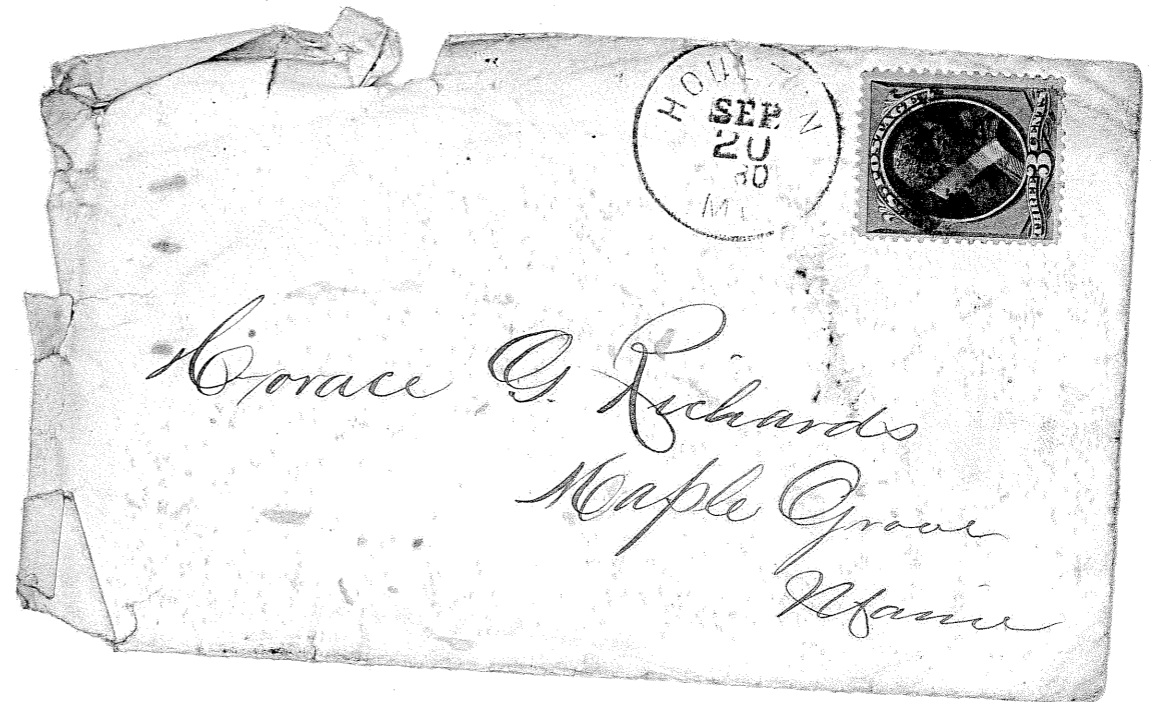 HOULTON
SEP.
20
80
ME
U.S. POSTAGE
3
Horace G. Richards
Maple Grove
Maine